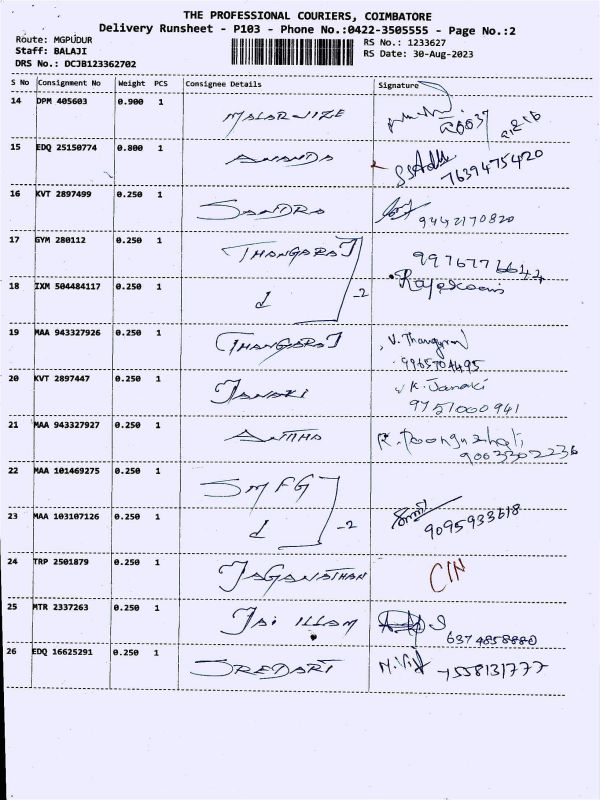 THE PROFESSIONAL COURIERS, COIMBATORE
Delivery Runsheet - P103 - Phone No.:0422-3505555 - Page No.:2
Route: MGPUDUR
Staff: BALAJI
DRS No.: DCJB123362702
RS No.: 1233627
RS Date: 30-Aug-2023
S No Consignment No Weight PCS Consignee Details Signature
14 DPM 405603 0.900 1 MALARVIZE
15 EDQ 25150774 0.800 1 ANANDA
7639475420
16 KVT 2897499 0.250 1 SANDRA
9442170820
17 GYM 280112 0.250 1 THANGARAJ
18 IXM 504484117 0.250 1 -2
19 MAA 943327926 0.250 1 THANGARAJ V. Thangaraj
9965704495
20 KVT 2897447 0.250 1 JANAKI K. Janaki
9751000941
21 MAA 943327927 0.250 1
9003302236
22 MAA 101469275 0.250 1 SMFG
23 MAA 103107126 0.250 1 -2
9095933618
24 TRP 2501879 0.250 1 JAGANATHAN
25 MTR 2337263 0.250 1 JAI ILLAM
6374858880
26 EDQ 16625291 0.250 1